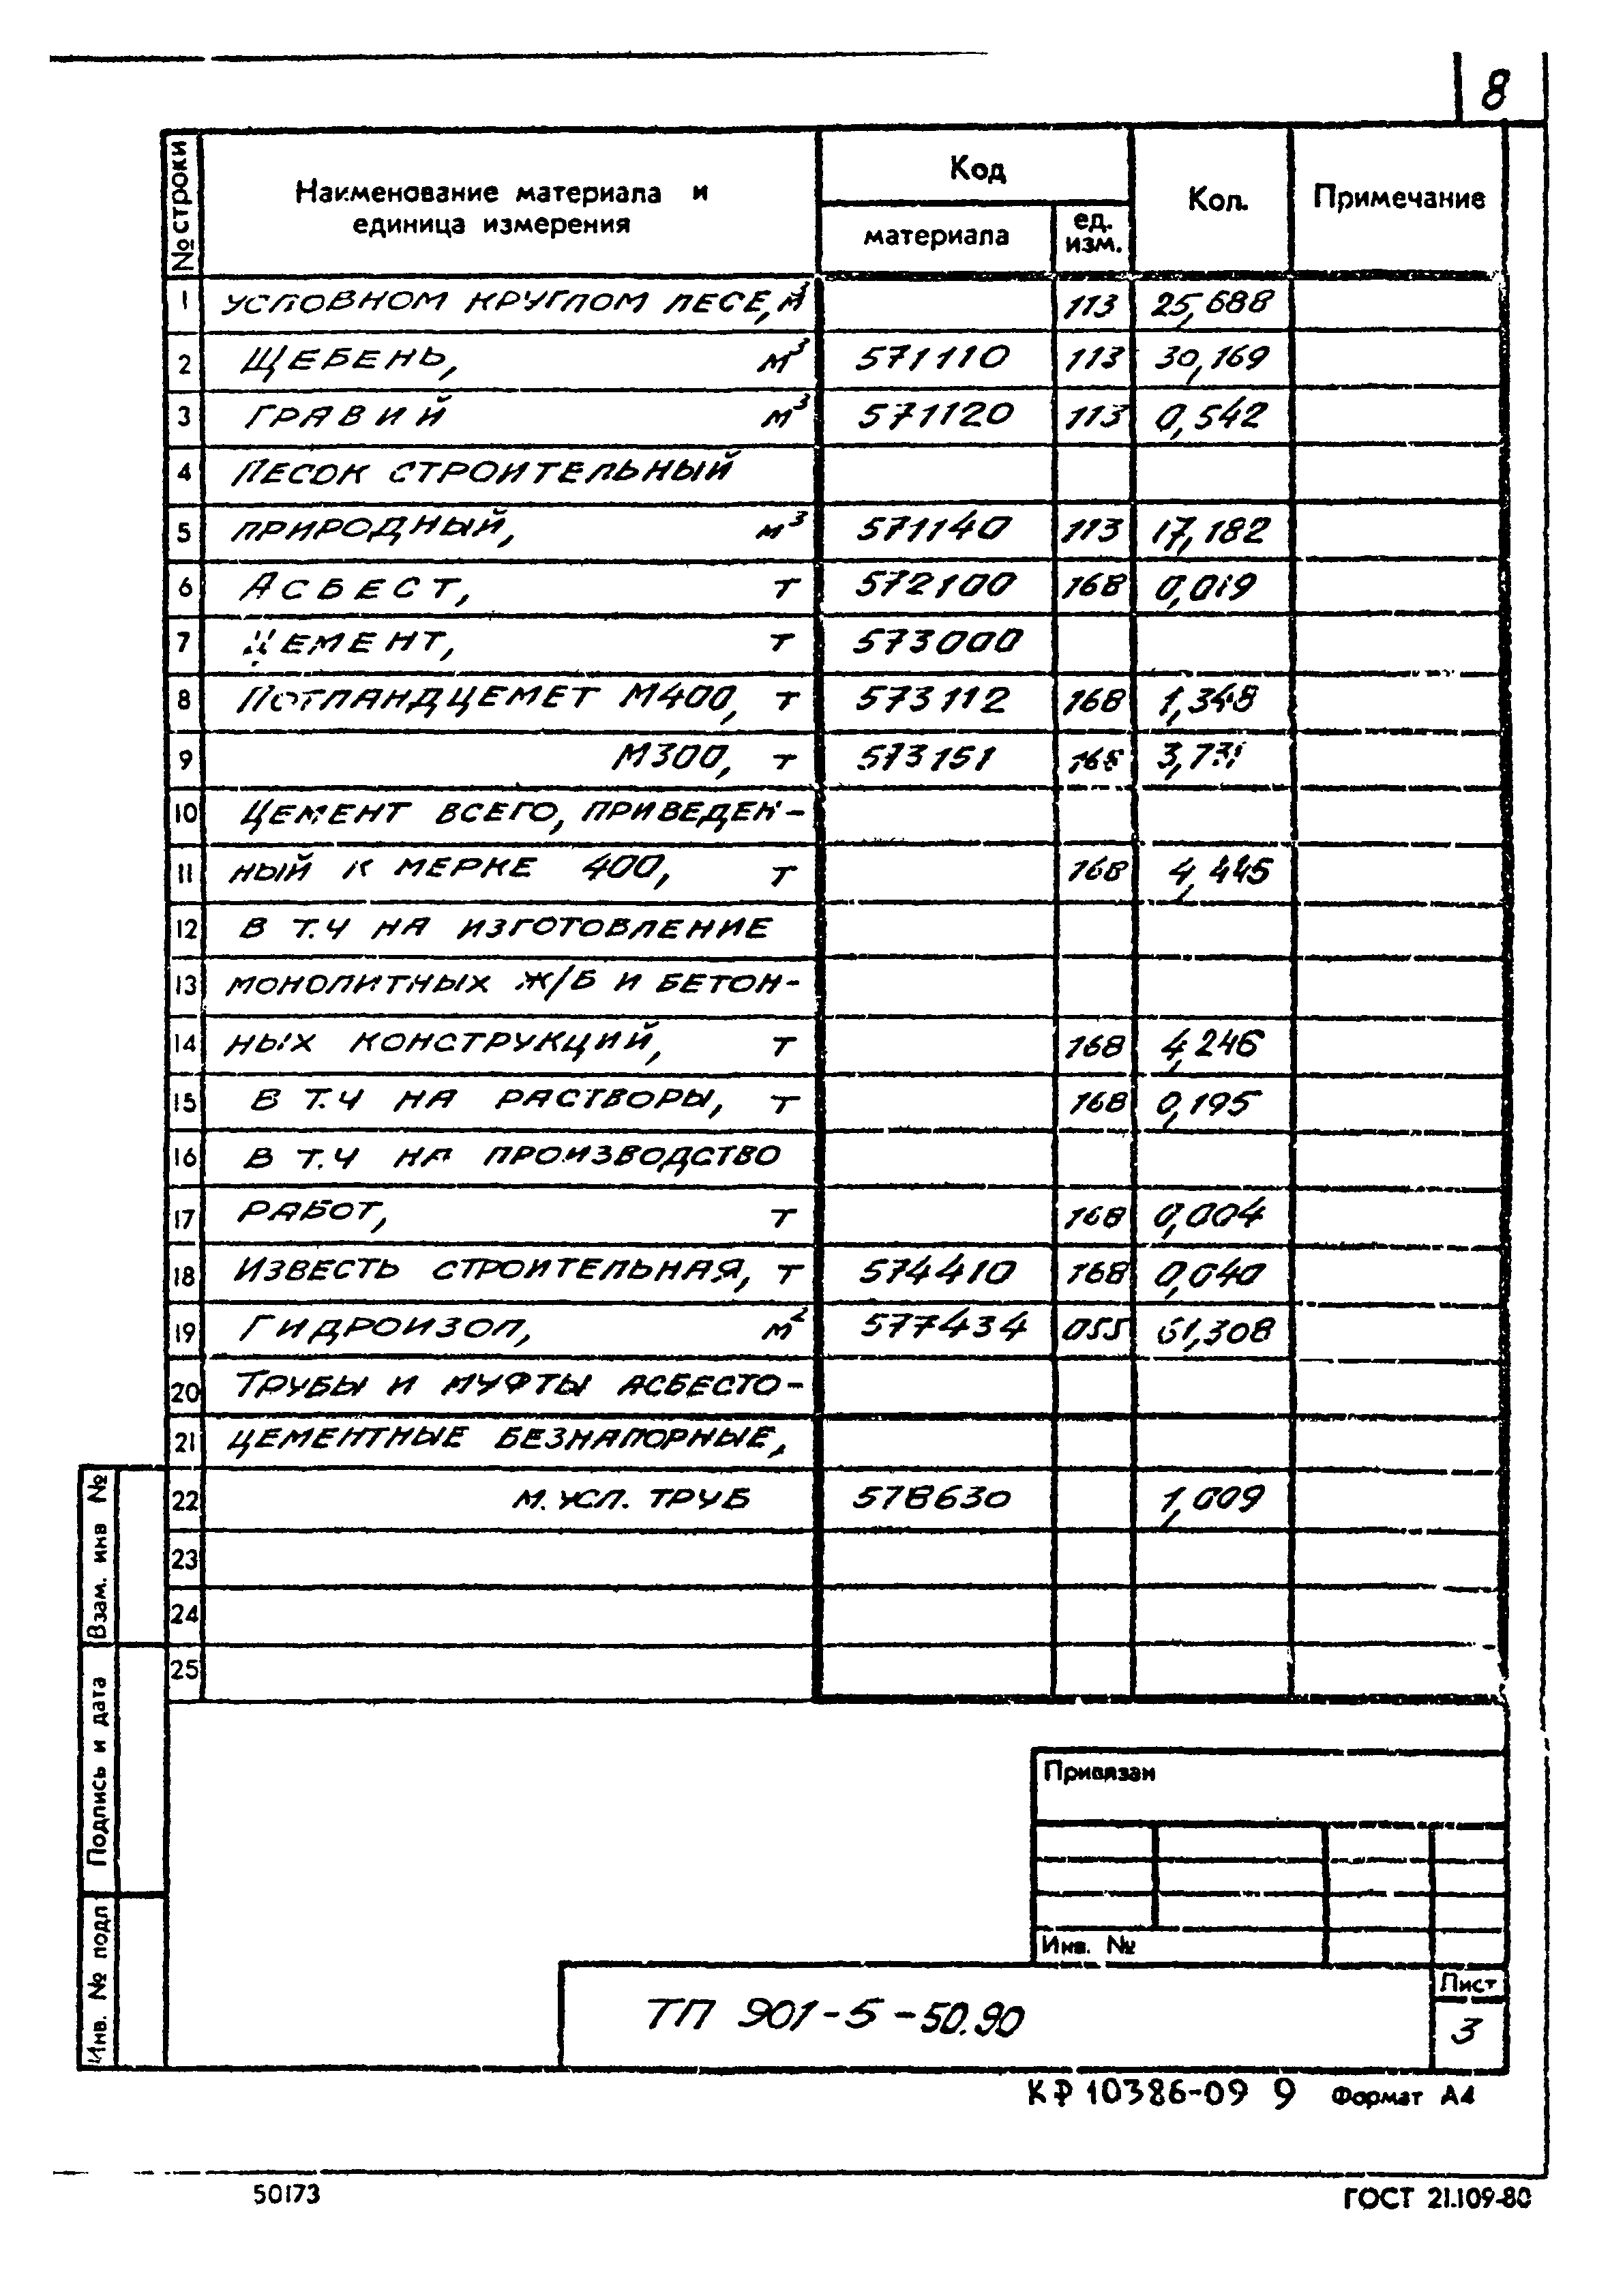 8
№ строки
Наименование материала и единица измерения
Код
материала
ед. изм.
Кол.
Примечание
1 УСЛОВНОМ КРУГЛОМ ЛЕСЕ, м³ 113 25,688
2 ЩЕБЕНЬ, м³ 571110 113 30,169
3 ГРАВИЙ м³ 571120 113 0,542
4 ПЕСОК СТРОИТЕЛЬНЫЙ
5 ПРИРОДНЫЙ, м³ 571140 113 17,182
6 АСБЕСТ, Т 572100 168 0,019
7 ЦЕМЕНТ, Т 573000
8 ПОТЛАНДЦЕМЕТ М400, Т 573112 168 1,348
9 М300, Т 573151 168
10 ЦЕМЕНТ ВСЕГО, ПРИВЕДЕН-
11 НЫЙ К МЕРКЕ 400, Т 168 4,445
12 В Т.Ч НА ИЗГОТОВЛЕНИЕ
13 МОНОЛИТНЫХ Ж/Б И БЕТОН-
14 НЫХ КОНСТРУКЦИЙ, Т 168 4,246
15 В Т.Ч НА РАСТВОРЫ, Т 168 0,195
16 В Т.Ч НА ПРОИЗВОДСТВО
17 РАБОТ, Т 168 0,004
18 ИЗВЕСТЬ СТРОИТЕЛЬНАЯ, Т 574410 168 0,040
19 ГИДРОИЗОЛ, м² 577434 055 61,308
20 ТРУБЫ И МУФТЫ АСБЕСТО-
21 ЦЕМЕНТНЫЕ БЕЗНАПОРНЫЕ,
22 М. УСЛ. ТРУБ 578630 1,009
23
24
25
Взам. инв №
Подпись и дата
Инв. № подл
Привязан
Инв. №
ТП 901-5-50.90
Лист
3
КР 10386-09 9 Формат А4
50173
ГОСТ 21.109-80